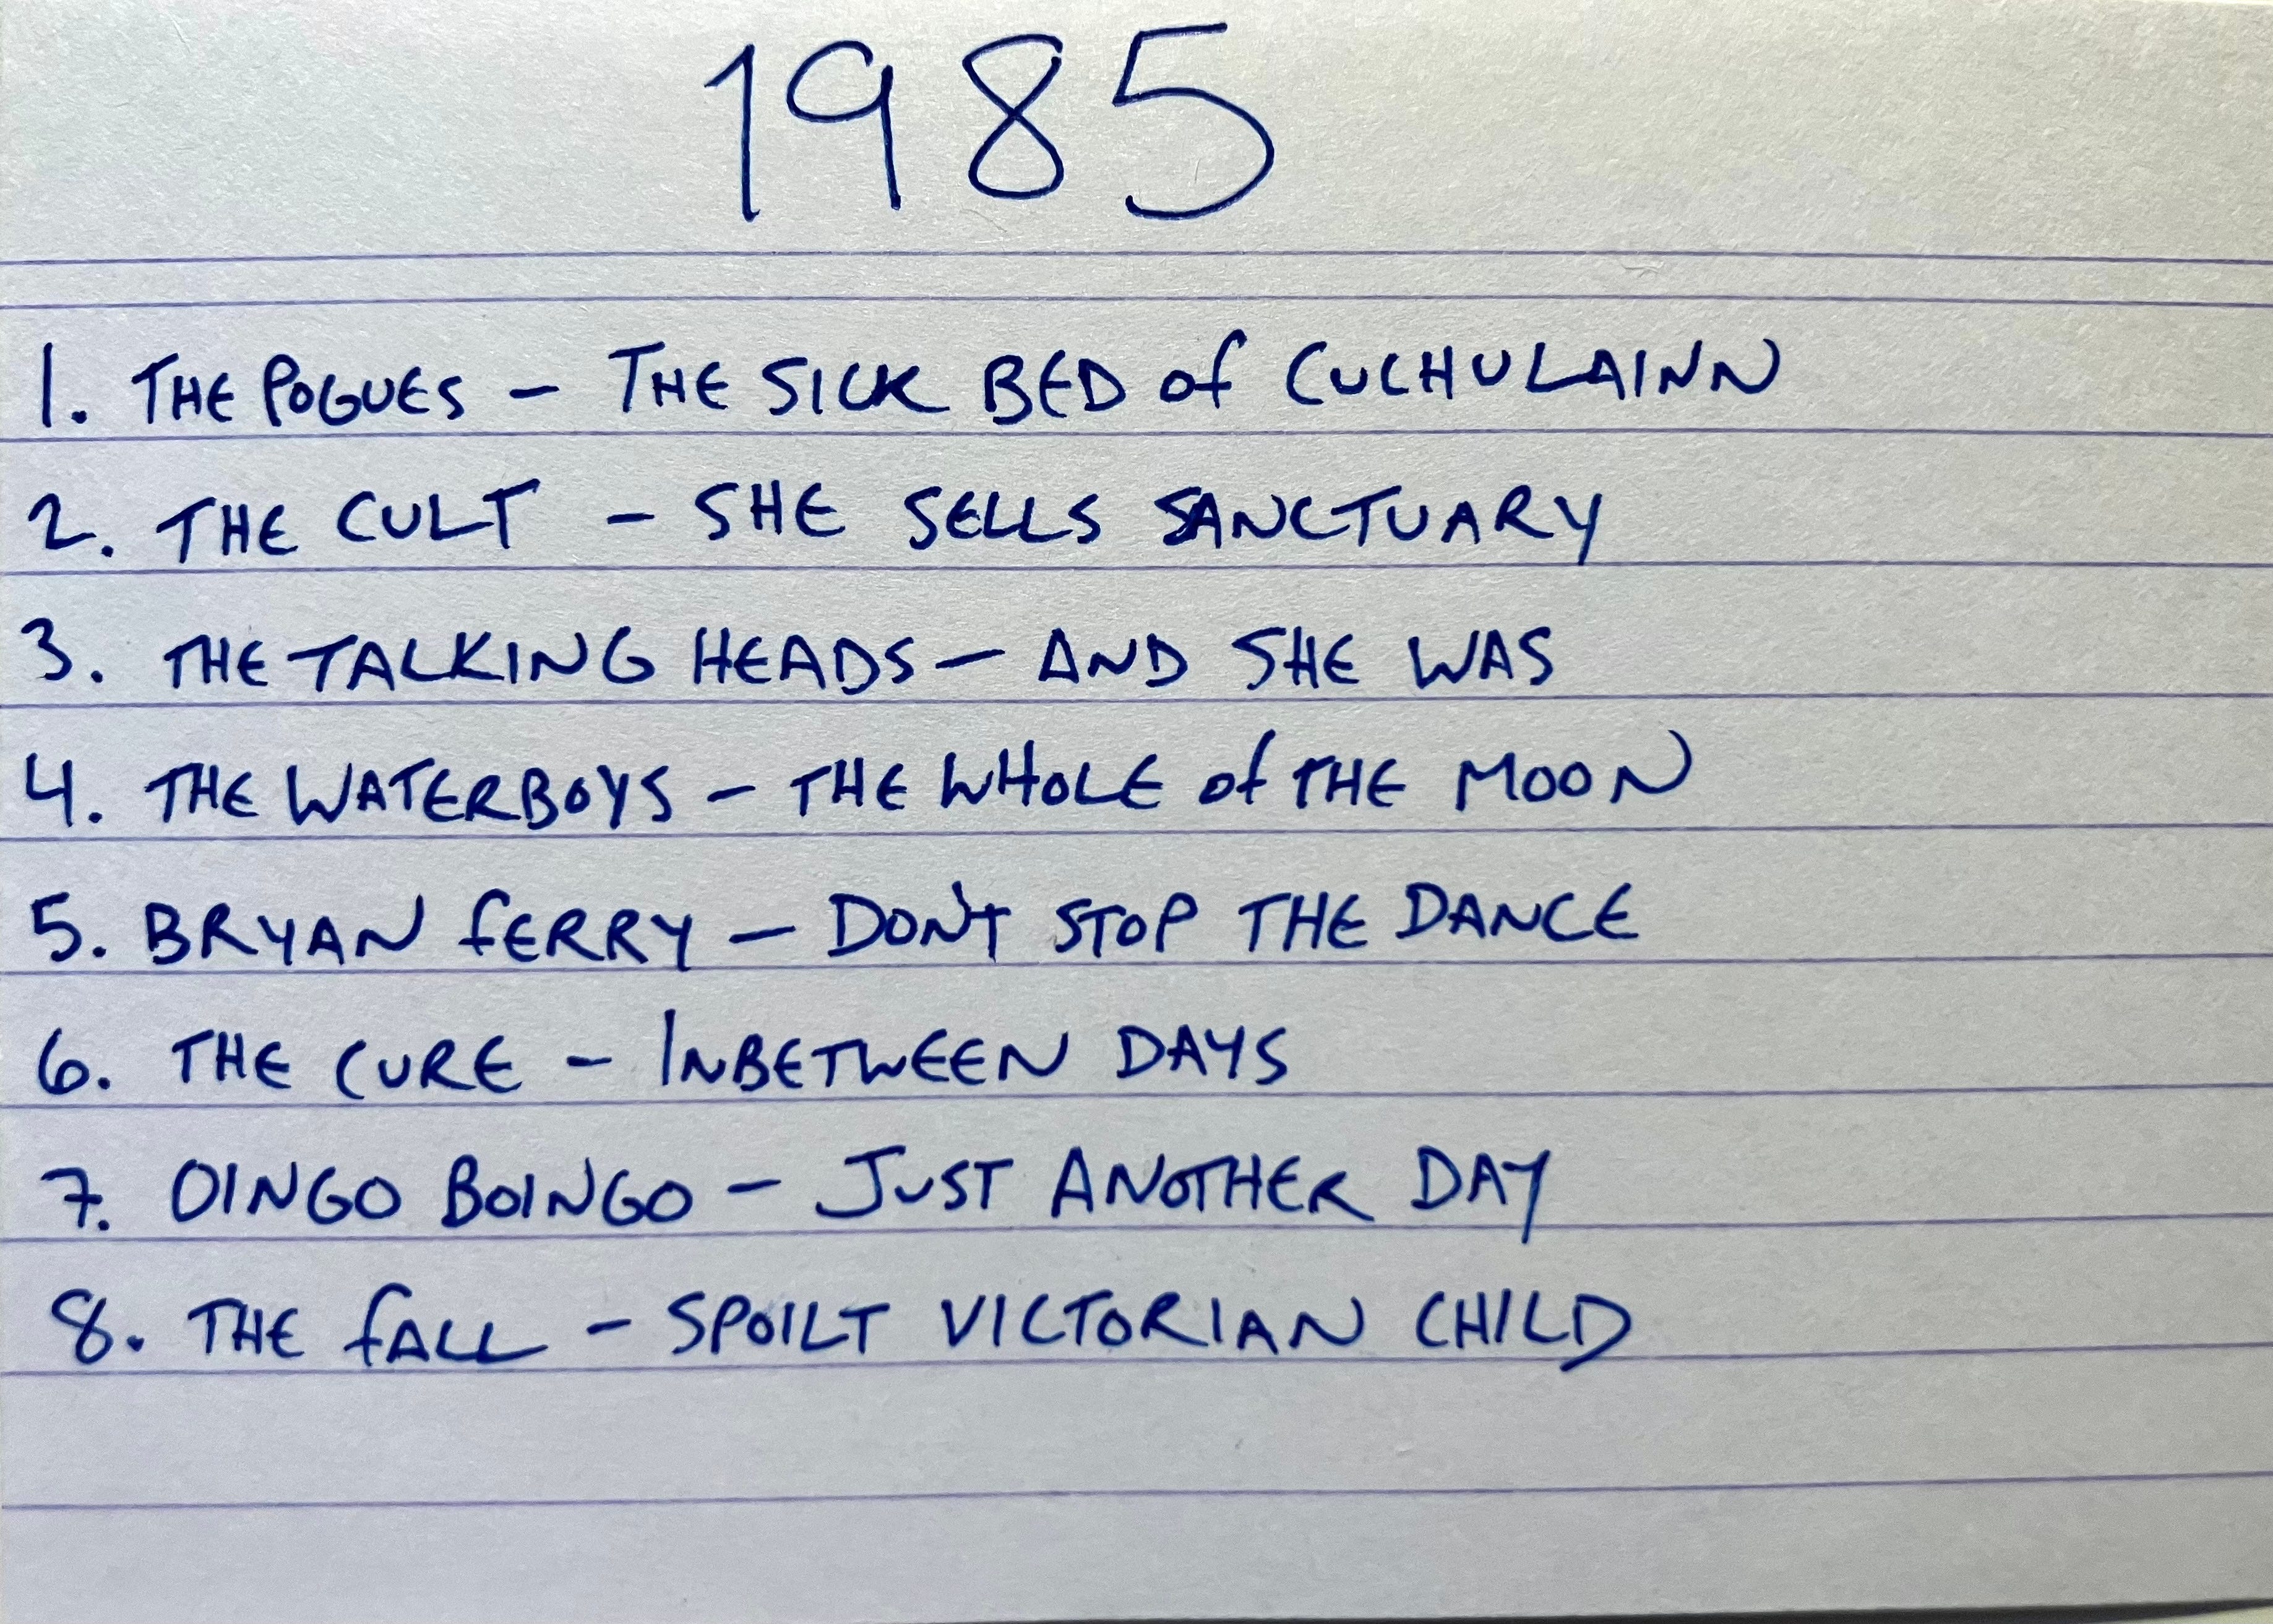 1985
1. THE POGUES - THE SICK BED of CUCHULAINN
2. THE CULT - SHE SELLS SANCTUARY
3. THE TALKING HEADS - AND SHE WAS
4. THE WATERBOYS - THE WHOLE of THE MOON
5. BRYAN fERRY - DON'T STOP THE DANCE
6. THE CURE - INBETWEEN DAYS
7. OINGO BOINGO - JUST ANOTHER DAY
8. THE fALL - SPOILT VICTORIAN CHILD